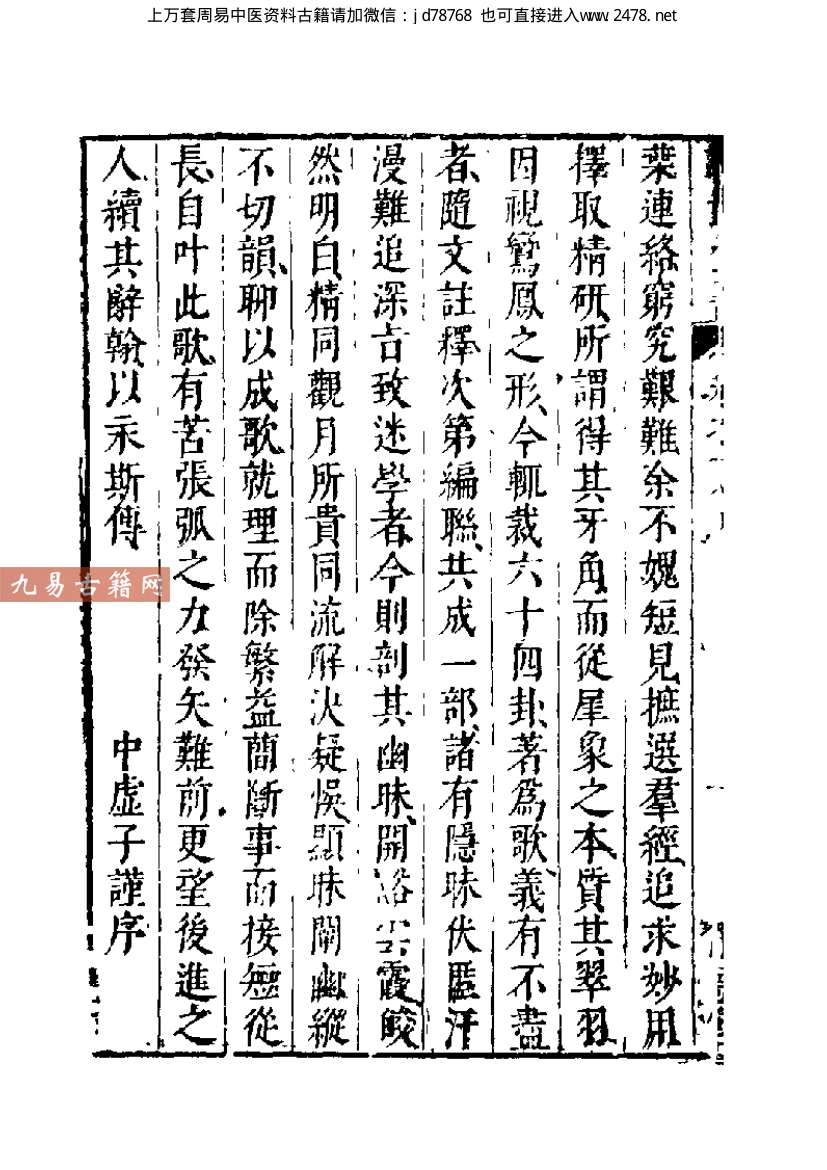 上万套周易中医资料古籍请加微信：jd78768 也可直接进入www.2478.net
葉連絡窮究艱難余不媿短見摭選羣經追求妙用
擇取精研所謂得其牙角而從犀象之本質其翠羽
因視鸞鳳之形今輒裁六十四卦著爲歌義有不盡
者隨文註釋次第編聯共成一部諸有隱昧伏匿汗
漫難追深言致迷學者今則剖其幽昧開谿雲霞皎
然明白精同觀月所貴同流解決疑悞顯昧闡幽縱
不切韻聊以成歌就理而除繁益蕳斷事而接短從
長自叶此歌有苦張弧之力發矢難前更望後進之
人續其辭翰以示斯傳
中虛子謹序
九易古籍网